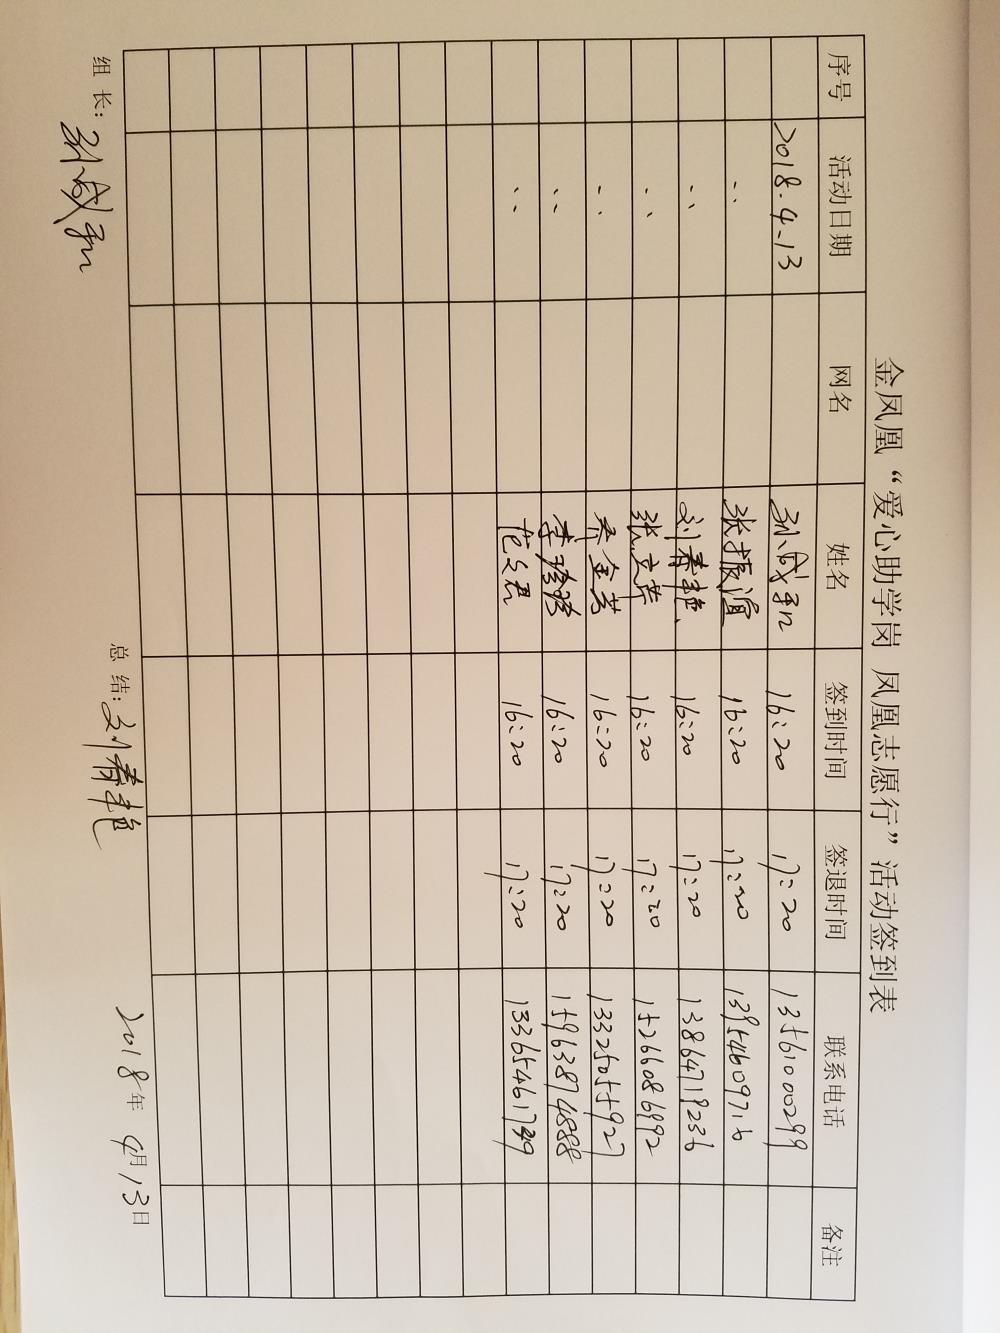 金凤凰“爱心助学岗 凤凰志愿行”活动签到表
序号 活动日期 网名 姓名 签到时间 签退时间 联系电话 备注
2018.4.13 孙成和 16:20 17:20 13561000299
〃 张振谊 16:20 17:20 13954609716
〃 刘春艳 16:20 17:20 13864719236
〃 张立萍 16:20 17:20 15266086992
〃 乔金芳 16:20 17:20 13325055927
〃 李珍珍 16:20 17:20 15963874888
〃 范文君 16:20 17:20
组 长: 孙成和 总 结: 刘春艳 2018年 4月13日